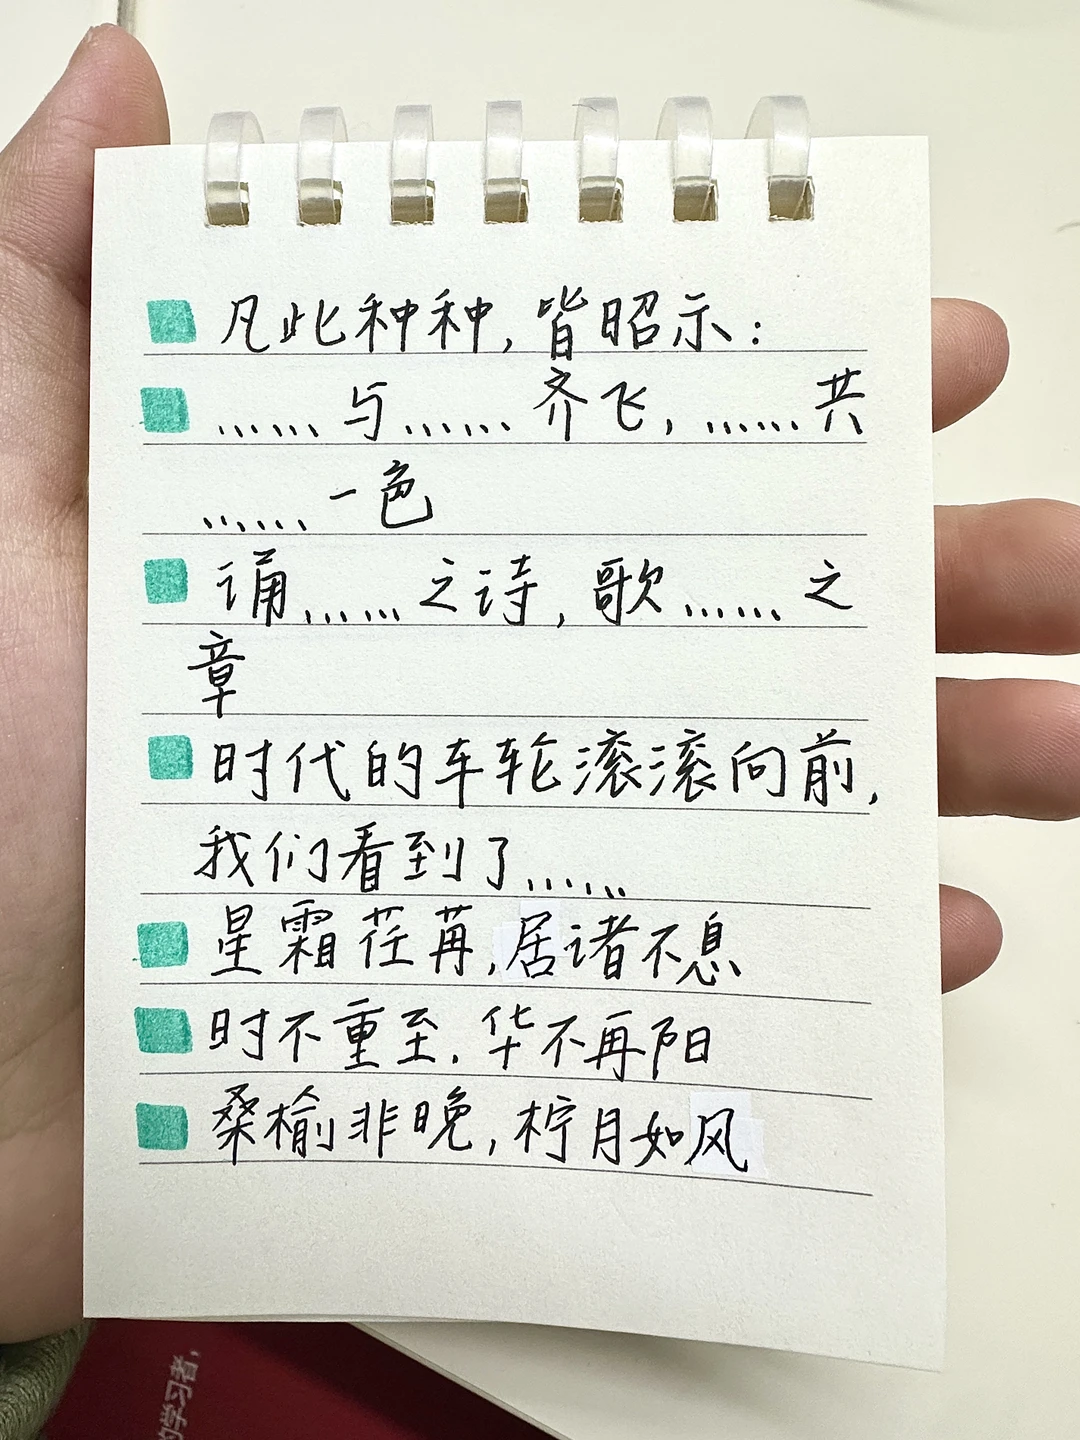 凡此种种,皆昭示:
……与……齐飞,……共
……一色
诵……之诗,歌……之
章
时代的车轮滚滚向前,
我们看到了……
星霜荏苒,居诸不息
时不重至,华不再阳
桑榆非晚,柠月如风
的学习者,